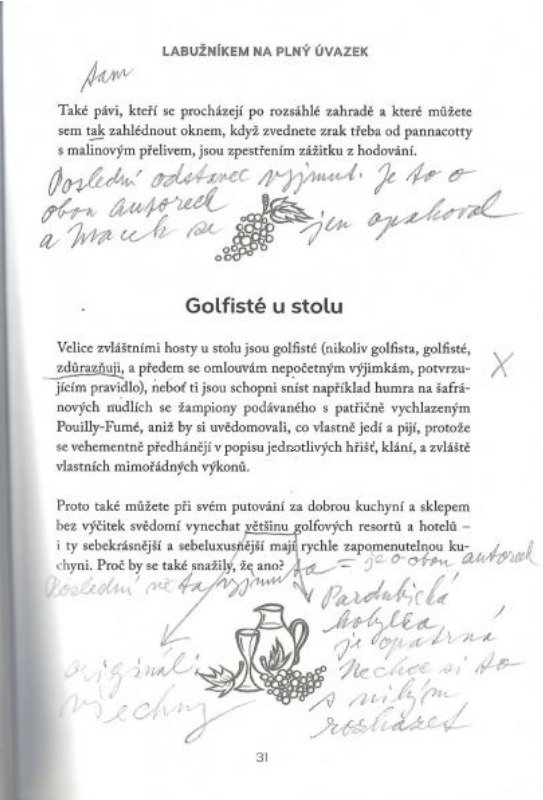 LABUŽNÍKEM NA PLNÝ ÚVAZEK
tam
Také pávi, kteří se procházejí po rozsáhlé zahradě a které můžete
sem tak zahlédnout oknem, když zvednete zrak třeba od pannacotty
s malinovým přelivem, jsou zpestřením zážitku z hodování.
Poslední odstavec vyjmut. Je to o
obou autorech
a Macek se jen opakoval
Golfisté u stolu
Velice zvláštními hosty u stolu jsou golfisté (nikoliv golfista, golfisté,
zdůrazňuji, a předem se omlouvám nepočetným výjimkám, potvrzu-
jícím pravidlo), neboť ti jsou schopni sníst například humra na šafrá-
nových nudlích se žampiony podávaného s patřičně vychlazeným
Pouilly-Fumé, aniž by si uvědomovali, co vlastně jedí a pijí, protože
se vehementně předhánějí v popisu jednotlivých hřišť, klání, a zvláště
vlastních mimořádných výkonů.
X
Proto také můžete při svém putování za dobrou kuchyní a sklepem
bez výčitek svědomí vynechat většinu golfových resortů a hotelů –
i ty sebekrásnější a sebeluxusnější mají rychle zapomenutelnou ku-
chyni. Proč by se také snažily, že ano?
Poslední věta vyjmuta = je o obou autorech
originál:
všechny
Pardubická
kobylka
je opatrná
Nechce si to
s nikým
rozházet
31